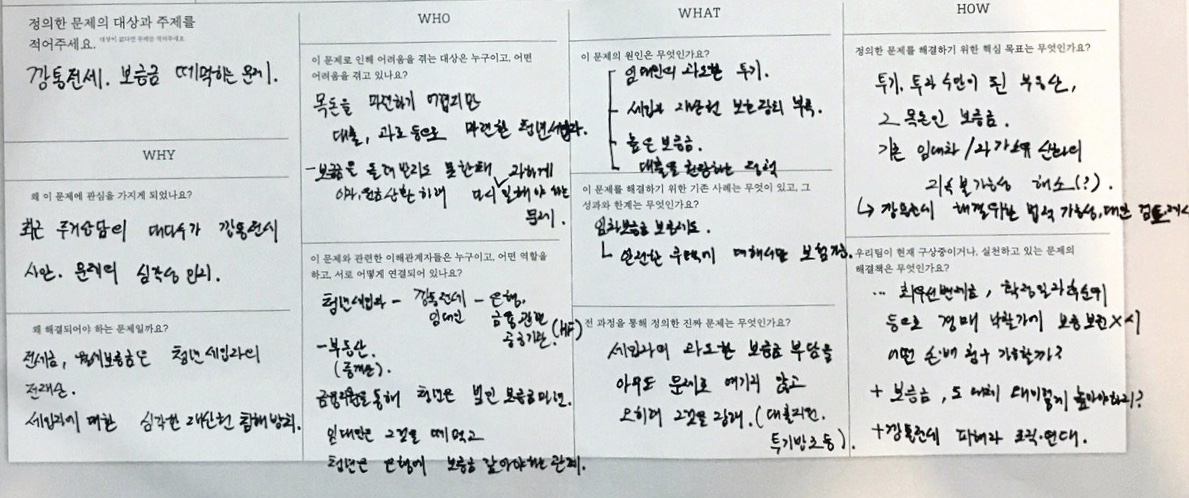 정의한 문제의 대상과 주제를
적어주세요. 대상이 없다면 주제만 적어주세요.
깡통전세. 보증금 떼먹히는 문제.
WHY
왜 이 문제에 관심을 가지게 되었나요?
최근 주거상담의 대다수가 깡통전세
사안. 문제의 심각성 인지.
왜 해결되어야 하는 문제일까요?
전세금, 월세보증금은 청년세입자의
전재산.
세입자에 대한 심각한 재산권 침해 방치.
WHO
이 문제로 인해 어려움을 겪는 대상은 누구이고, 어떤
어려움을 겪고 있나요?
목돈을 마련하기 어렵지만
대출, 과로 등으로 마련한 청년세입자.
-보증금은 돌려받지도 못한채 과하게
이자, 원금상환하러 다시 일해야 하는
문제.
이 문제와 관련한 이해관계자들은 누구이고, 어떤 역할을
하고, 서로 어떻게 연결되어 있나요?
청년세입자 - 깡통전세 - 은행.
임대인 금융관련
공공기관. (HF)
-부동산.
(중개인).
금융지원을 통해 청년은 빌린 보증금 마련.
임대인은 그것을 떼먹고
청년은 은행에 보증금 갚아야하는 관계.
WHAT
이 문제의 원인은 무엇인가요?
임대인의 과도한 투기.
세입자 재산권 보호장치 부족.
높은 보증금.
대출을 권장하는 정책
이 문제를 해결하기 위한 기존 사례는 무엇이 있고, 그
성과와 한계는 무엇인가요?
임차보증금 보험제도.
안전한 주택에 대해서만 보험적용.
전 과정을 통해 정의한 진짜 문제는 무엇인가요?
세입자의 과도한 보증금 부담을
아무도 문제로 여기지 않고
오히려 그것을 장려. (대출지원,
투기방조 등).
HOW
정의한 문제를 해결하기 위한 핵심 목표는 무엇인가요?
투기, 투자수단이 된 부동산,
그 목돈인 보증금.
기존 임대차/자가소유 신화의
지속불가능성 해소(?).
깡통전세 해결위한 법적 가능성, 대안 검토
우리팀이 현재 구상중이거나, 실천하고 있는 문제의
해결책은 무엇인가요?
... 최우선변제금, 확정일자 후순위
등으로 경매 낙찰가에 보증금보전 X 시
어떤 손·배 청구 가능할까?
+ 보증금, 도대체 왜 이렇게 높아야하지?
+ 깡통전세 피해자 조직·연대.